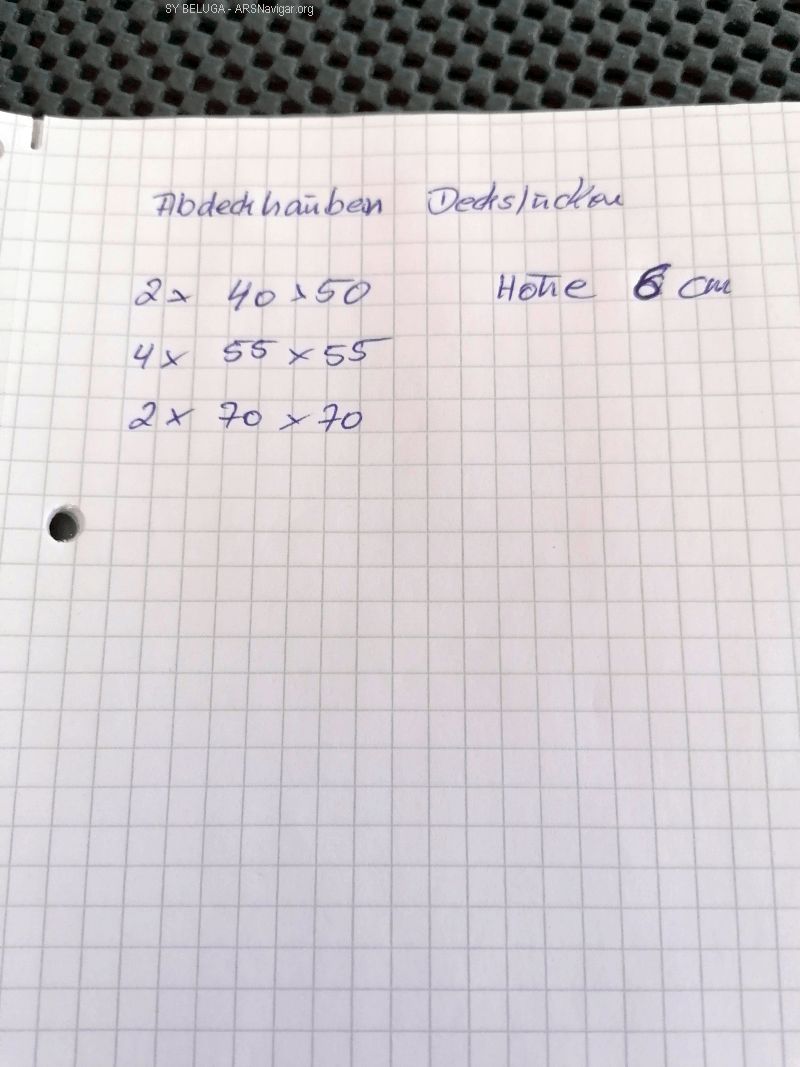 SY BELUGA - ARSNavigar.org
Abdeckhauben Deckslucken
2x 40x50 Höhe 6 cm
4x 55x55
2x 70x70